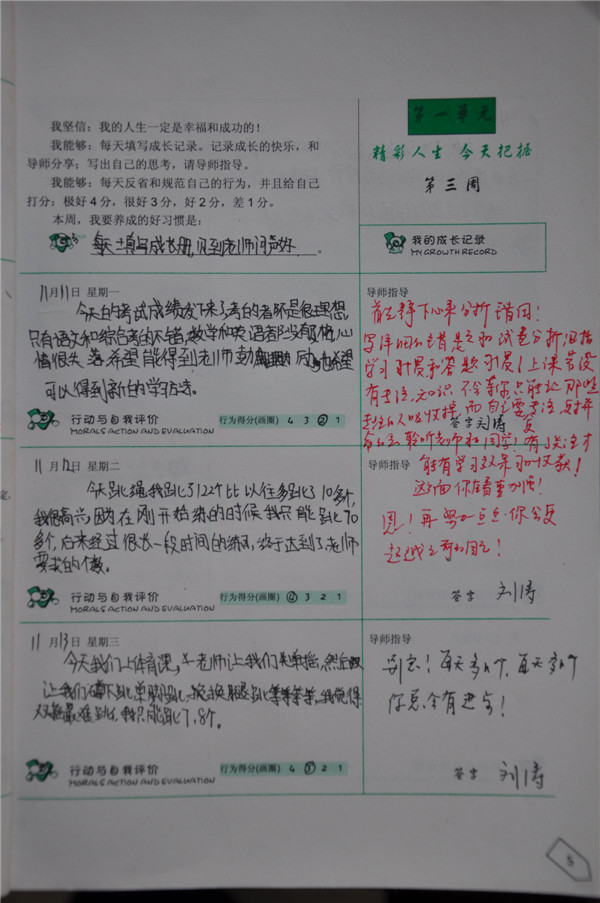 我坚信：我的人生一定是幸福和成功的！
我能够：每天填写成长记录。记录成长的快乐，和
导师分享；写出自己的思考，请导师指导。
我能够：每天反省和规范自己的行为，并且给自己
打分：极好4分，很好3分，好2分，差1分。
本周，我要养成的好习惯是：
每天填写成长册，见到老师问声好。
第一单元
精彩人生 今天把握
第三周
我的成长记录
MY GROWTH RECORD
11月11日 星期一
今天的考试成绩发下来了考的都不是很理想，
只有语文和综合考的不错，数学和英语都没有考好，心
情很失落希望能得到老师
可以得到新的学习方法。
行动与自我评价
MORALS ACTION AND EVALUATION
行为得分(画圈) 4 3 2 1
导师指导
首先静下心来分析错因！
学习习惯和答题习惯！上课若没
有专注，知识不会等你
命的去聆听老师和同学！有了关注才
能有学习效果和收获！
签字 刘涛
11月12日 星期二
今天跳绳，我跳了122个比以往多跳了10多个，
我很高兴，因为在刚开始练的时候我只能跳70
多个，后来经过很长一段时间的练习，终于达到了老师
要求的个数。
行动与自我评价
MORALS ACTION AND EVALUATION
行为得分(画圈) 4 3 2 1
导师指导
恩！再努力一点点，你会更
签字 刘涛
11月13日 星期三
今天我们上体育课，老师让我们先单摇，然后
让我们单脚跳、换腿跳等等等等，我觉得
双摇最难跳，我只能跳7、8个。
行动与自我评价
MORALS ACTION AND EVALUATION
行为得分(画圈) 4 3 2 1
导师指导
别急！每天多几个，每天多几个
你总会有进步！
签字 刘涛
5